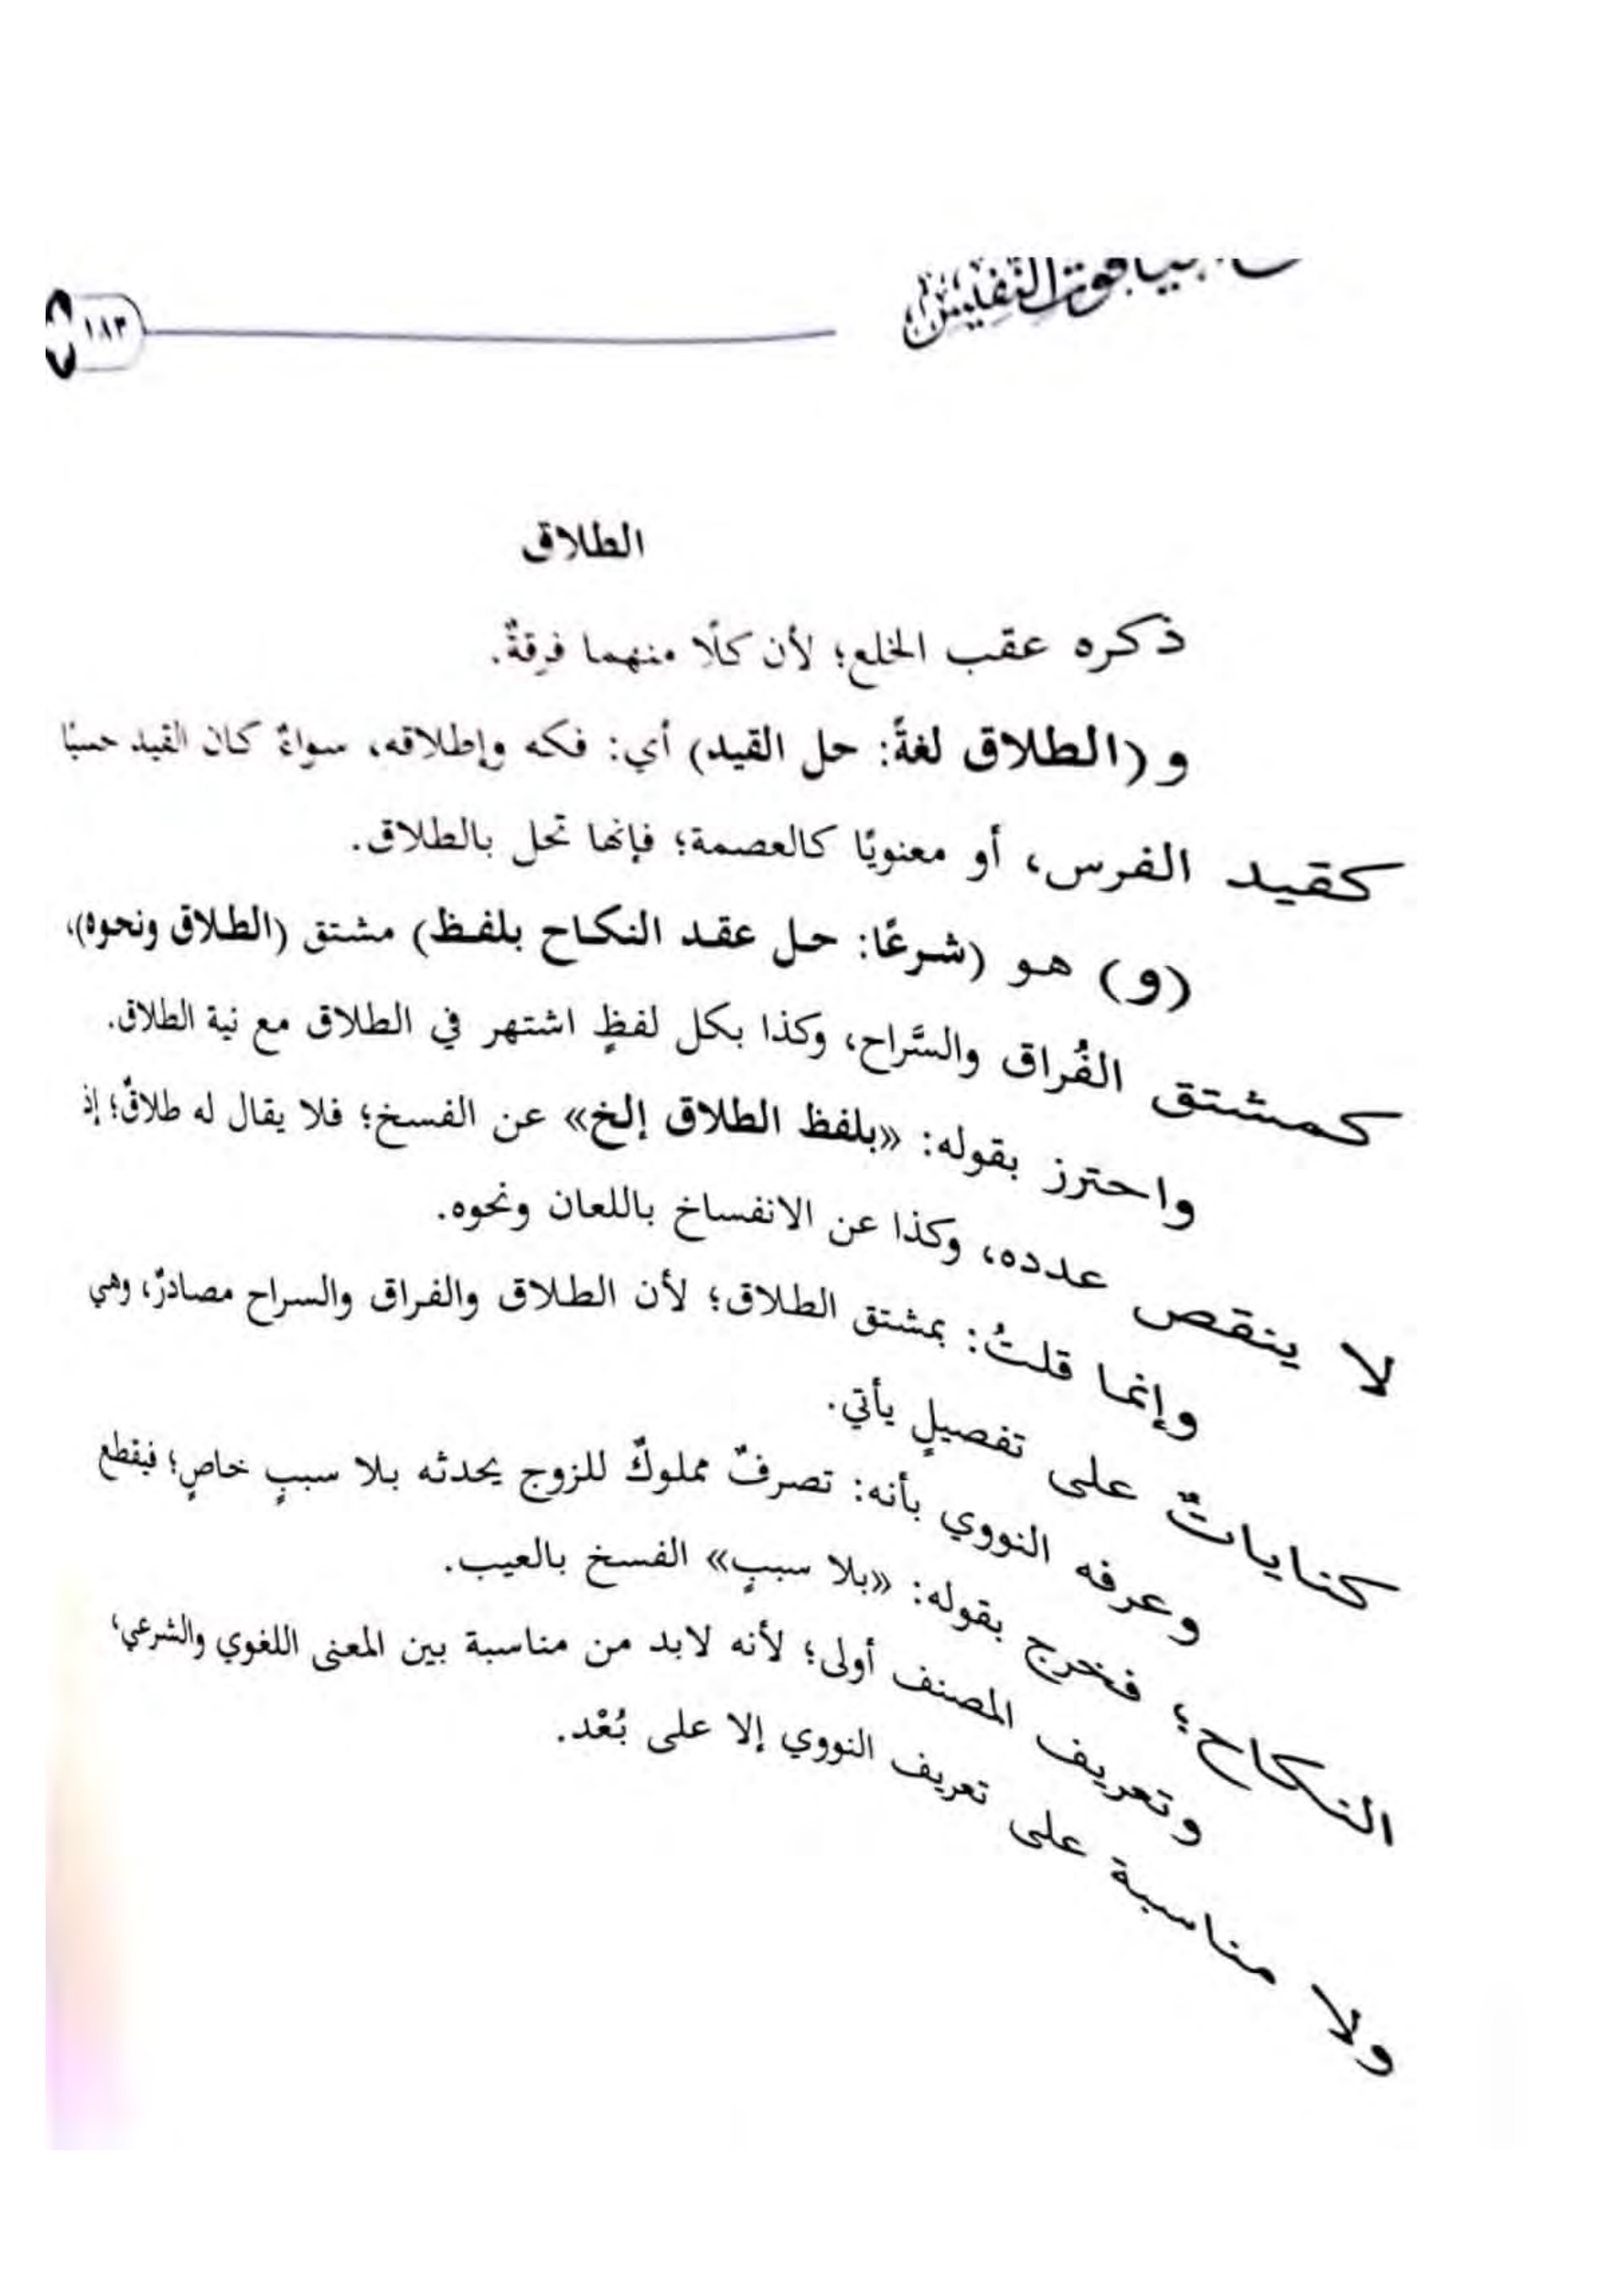 الياقوت النفيس
١٨٣
الطلاق
ذكره عقب الخلع؛ لأن كلًا منهما فرقةٌ.
و (الطلاق لغةً: حل القيد) أي: فكه وإطلاقه، سواءٌ كان القيد حسيًا
كقيد الفرس، أو معنويًا كالعصمة؛ فإنها تحل بالطلاق.
(و) هو (شرعًا: حل عقد النكاح بلفظ) مشتق (الطلاق ونحوه)،
كمشتق الفُراق والسَّراح، وكذا بكل لفظٍ اشتهر في الطلاق مع نية الطلاق.
واحترز بقوله: «بلفظ الطلاق إلخ» عن الفسخ؛ فلا يقال له طلاقٌ؛ إذ
لا ينقص عدده، وكذا عن الانفساخ باللعان ونحوه.
وإنما قلتُ: بمشتق الطلاق؛ لأن الطلاق والفراق والسراح مصادرٌ، وهي
كناياتٌ على تفصيلٍ يأتي.
وعرفه النووي بأنه: تصرفٌ مملوكٌ للزوج يحدثه بلا سببٍ خاصٍ؛ فيقطع
النكاح؛ فخرج بقوله: «بلا سببٍ» الفسخ بالعيب.
وتعريف المصنف أولى؛ لأنه لابد من مناسبة بين المعنى اللغوي والشرعي،
ولا مناسبة على تعريف النووي إلا على بُعْد.